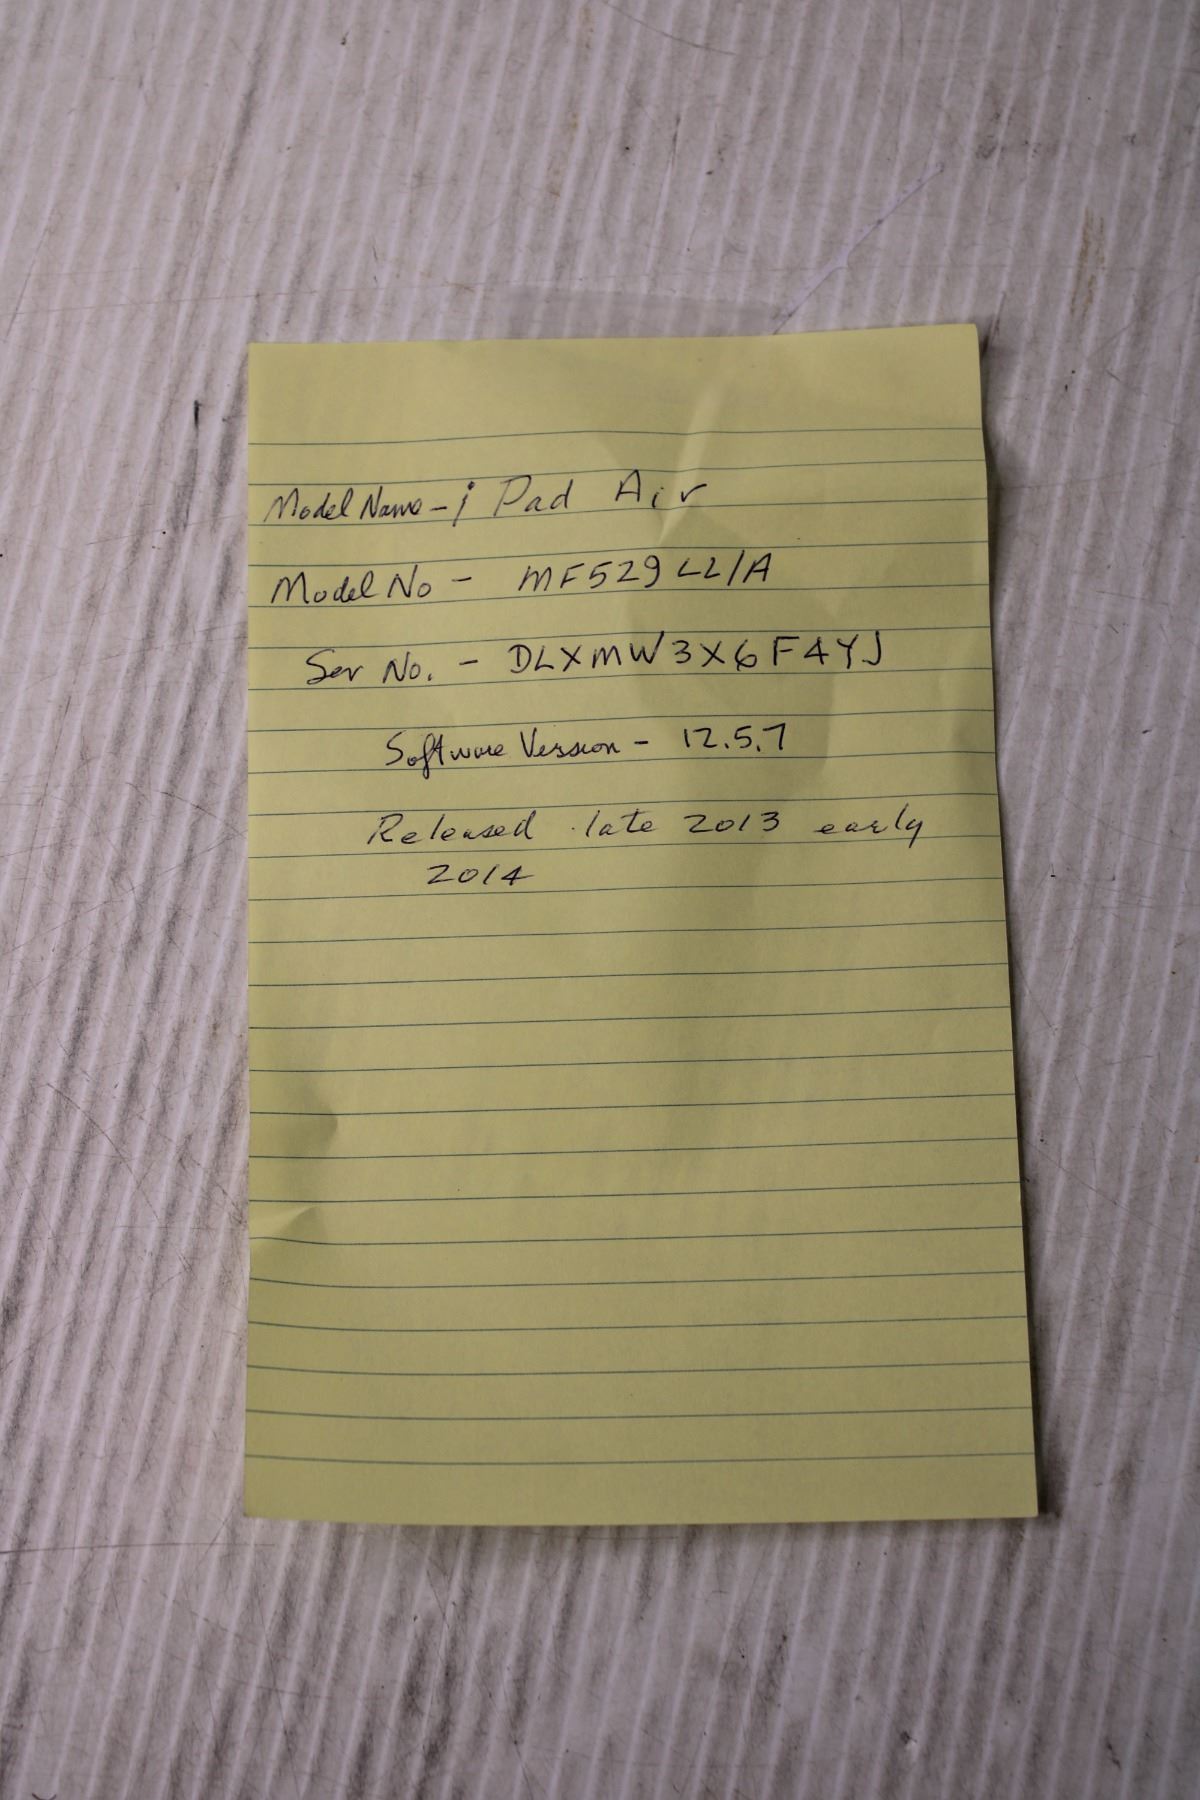 Model Name - iPad Air
Model No - MF529LL/A
Ser No. - DLXMW3X6F4YJ
Software Version - 12.5.7
Released late 2013 early
2014